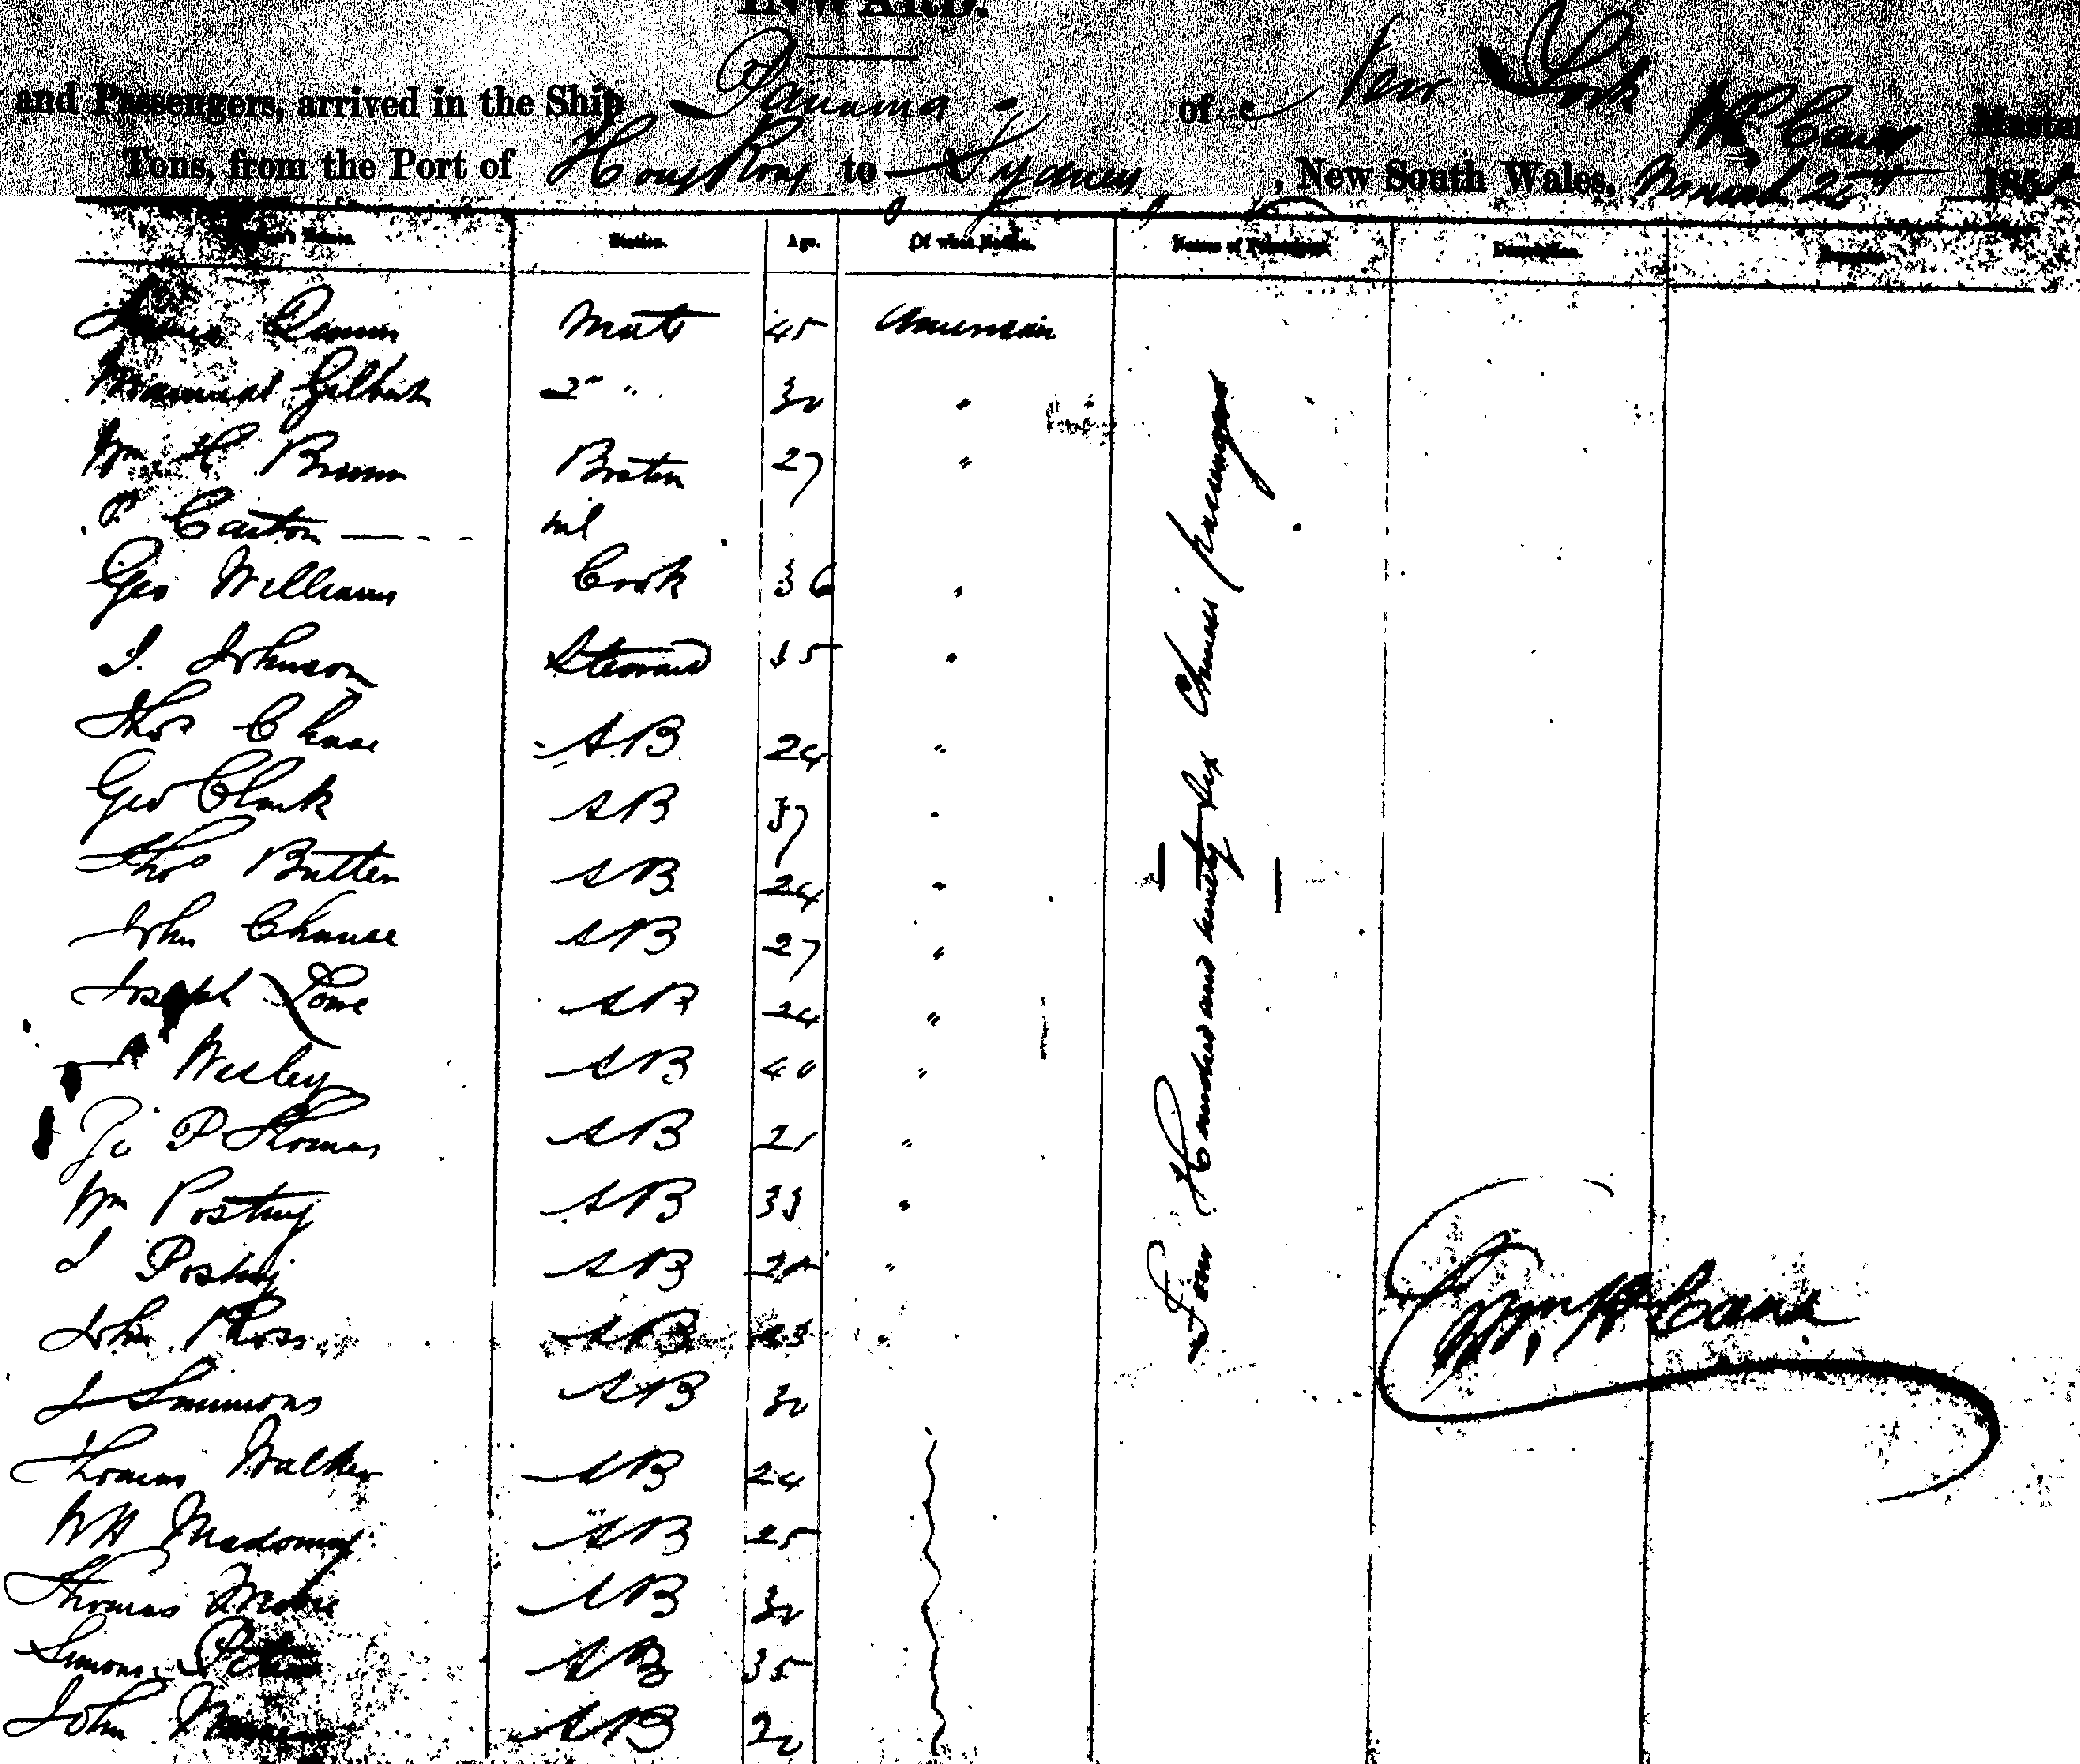 INWARD.
and Passengers, arrived in the Ship Panama of New York
Tons, from the Port of Hong Kong to Sydney, New South Wales, March 25th 185
Station. Age. Of what Nation. Names of Passengers. Description.
Mate 45 American
Gilbert 2" " 30 "
Wm H Brown Bostn 27 "
P Carton nil
Geo Williams Cook 36 "
J. Johnson Steward 35 "
Thos Chase AB 24 "
Geo Clark AB 37 "
Thos Butten AB 24 "
John Chause AB 27 "
Joseph Lowe AB 24 "
Wesley AB 40 "
P Thomas AB 21 "
Wm Posting AB 33 "
J Posting AB "
John Ross AB "
J Simmons AB 30
Thomas Walker AB 24
WH AB 25
Thomas AB 30
Simons AB 35
John AB 20
Four Hundred and twenty six Chinese passengers
Wm H Cave